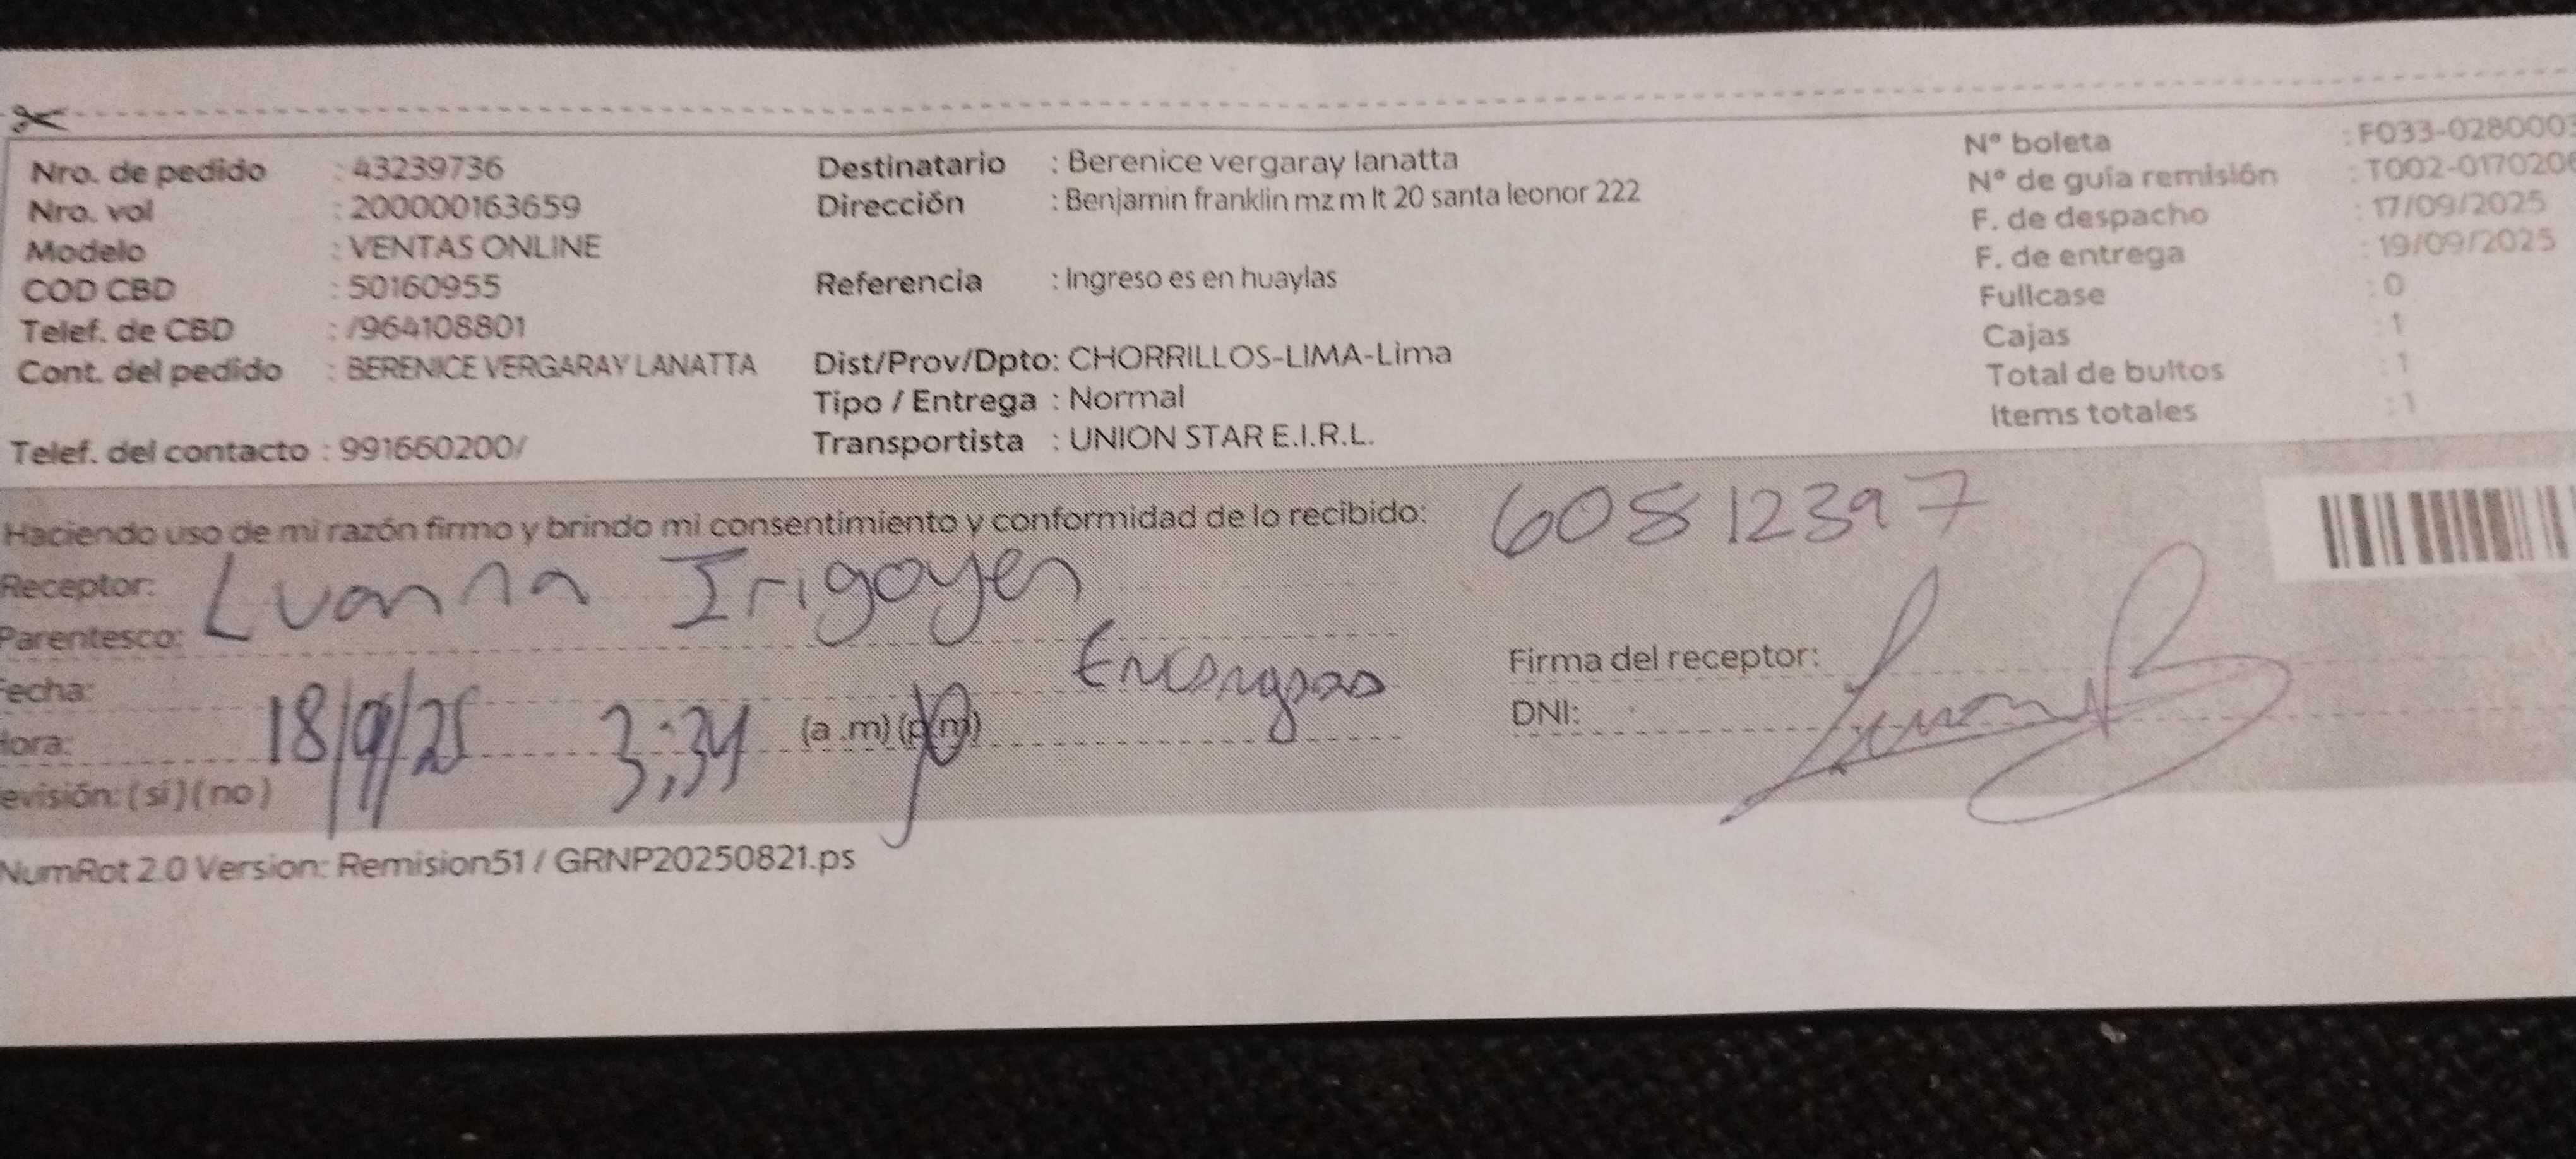 Nro. de pedido : 43239736
Nro. vol : 200000163659
Modelo : VENTAS ONLINE
COD CBD : 50160955
Telef. de CBD : /964108801
Cont. del pedido : BERENICE VERGARAY LANATTA
Telef. del contacto : 991660200/
Destinatario : Berenice vergaray lanatta
Dirección : Benjamin franklin mz m lt 20 santa leonor 222
Referencia : Ingreso es en huaylas
Dist/Prov/Dpto: CHORRILLOS-LIMA-Lima
Tipo / Entrega : Normal
Transportista : UNION STAR E.I.R.L.
N° boleta : F033-0280003
N° de guía remisión : T002-0170206
F. de despacho : 17/09/2025
F. de entrega : 19/09/2025
Fullcase : 0
Cajas : 1
Total de bultos : 1
Items totales : 1
Haciendo uso de mi razón firmo y brindo mi consentimiento y conformidad de lo recibido: 60812397
Receptor: Luanna Irigoyen
Parentesco:
Fecha: 18/9/25
Hora: 3:34 (a .m) (p.m)
evisión: (sí) (no)
Firma del receptor:
DNI:
NumRot 2.0 Version: Remision51 / GRNP20250821.ps